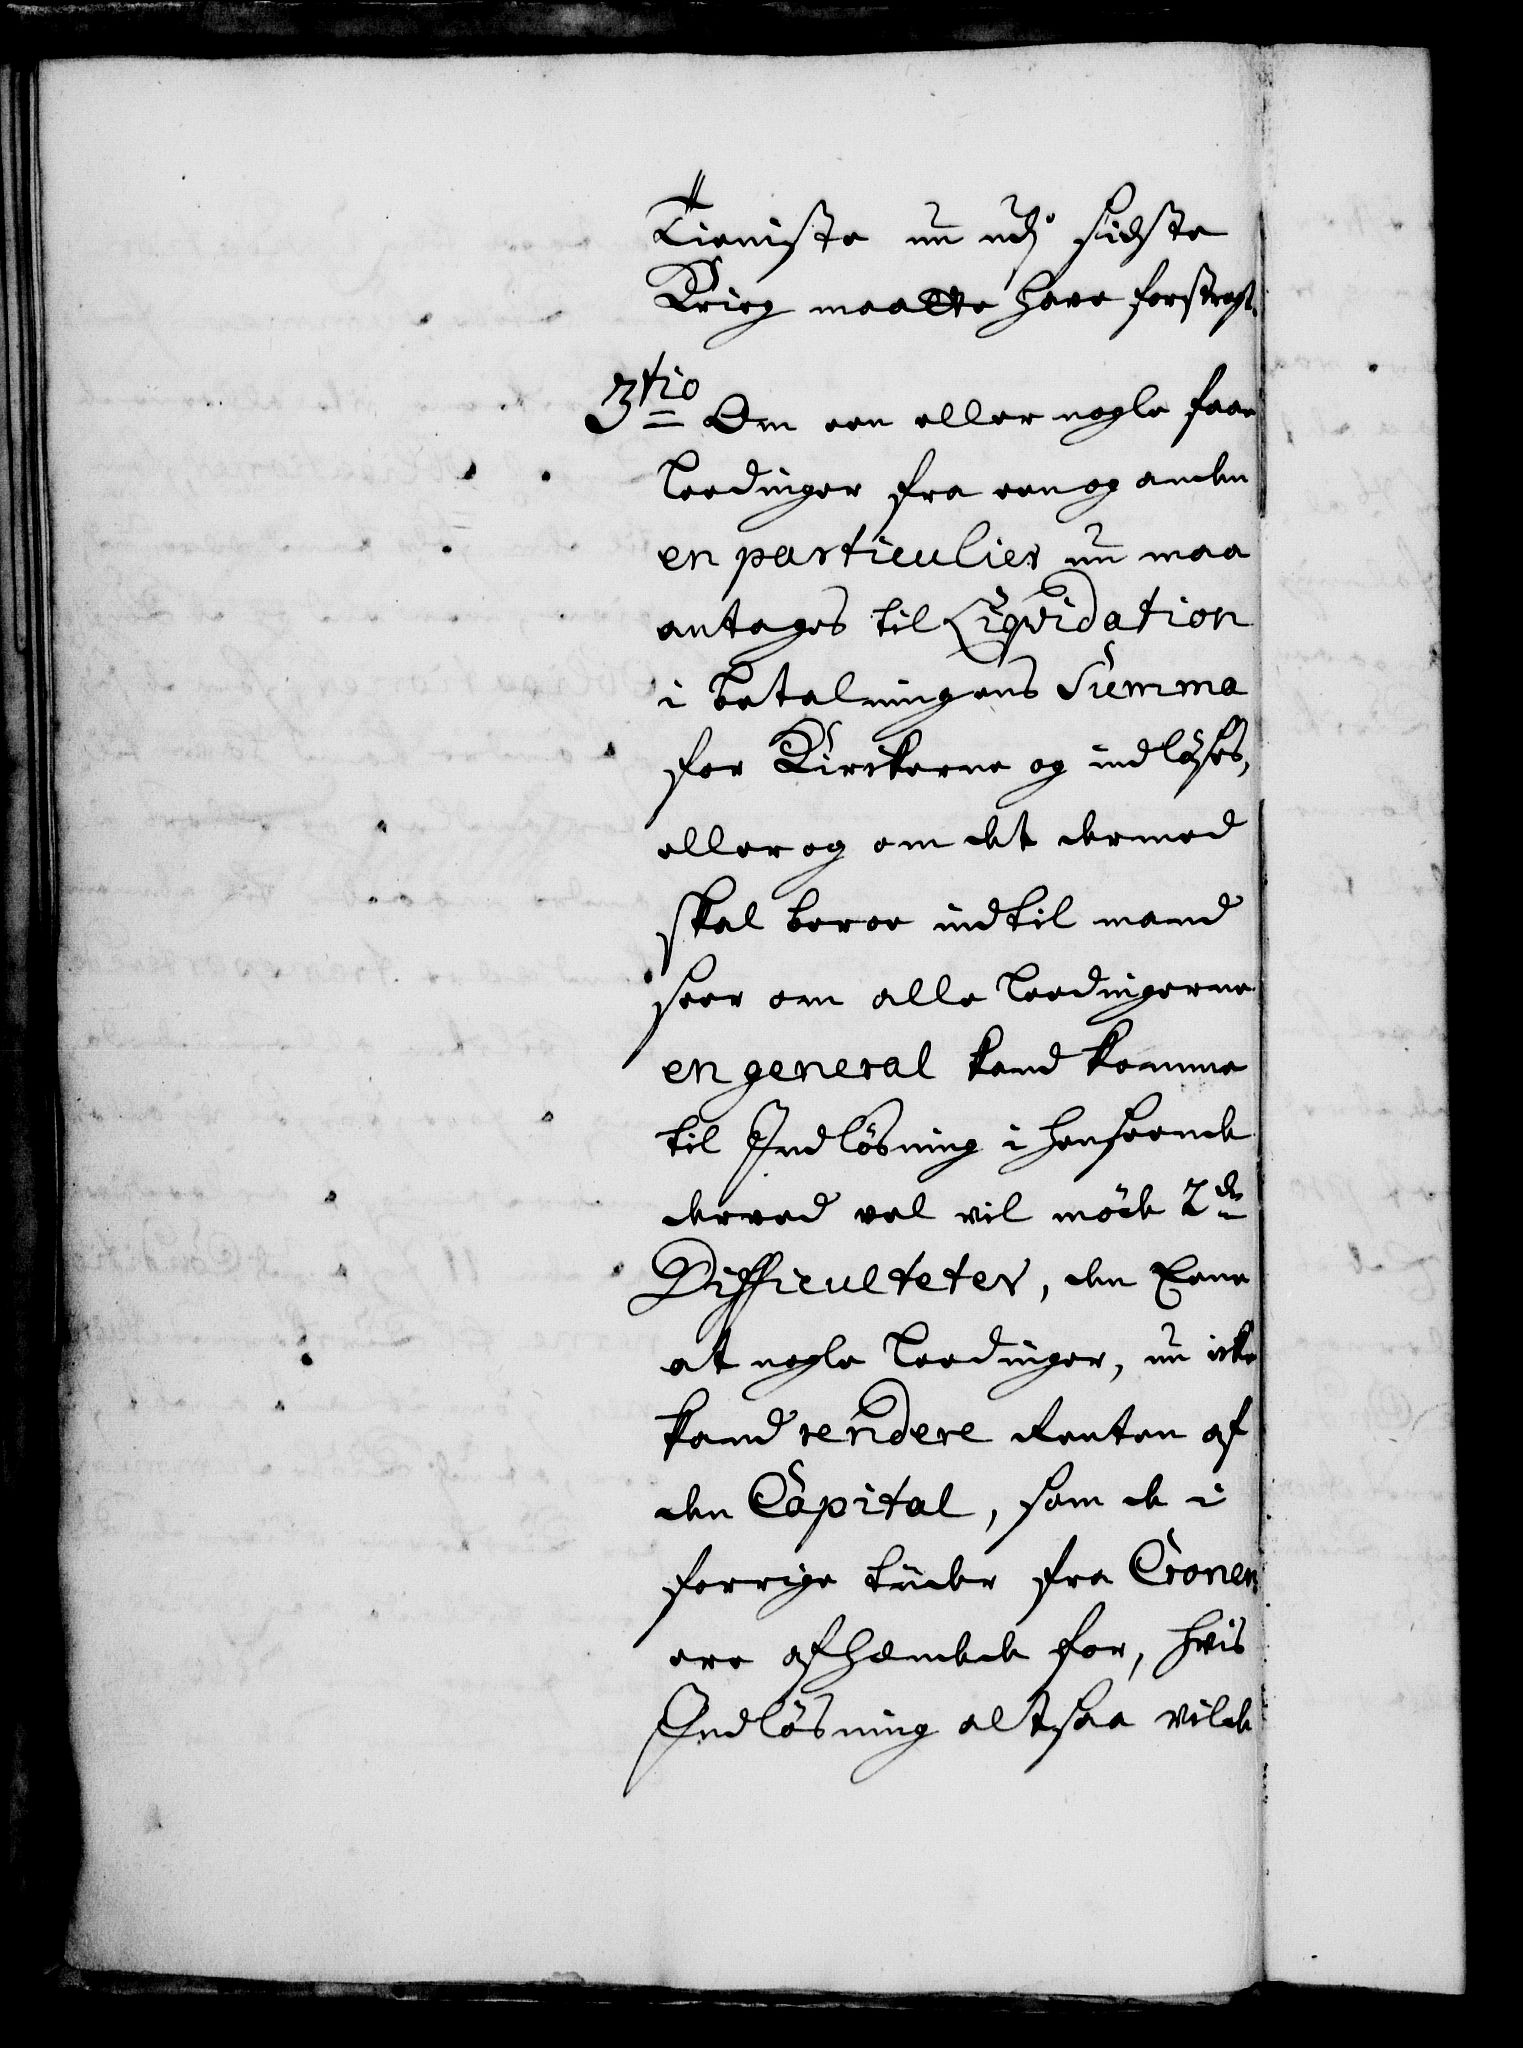 Tieniste nu udj sidste
Krieg maatte have forstragt.
3tio Om een eller nogle faae
Leedinger fra een og anden
en particulier nu maa
antages til Liqvidation
i betalningens Summa
for Kirkerne og indløses,
eller og om det dermed
skal beroe indtil mand
seer om alle Leedingerne
en general kand komme
til Indløsning i henseende
derved vel vil møde 2de
Difficulteter, den Eene
at nogle Leedinger, nu icke
kand rendere Renten af
den Capital, som de i
forrige tiider fra Cronen
ere afhendede for, hvis
Indløsning altsaa vilde